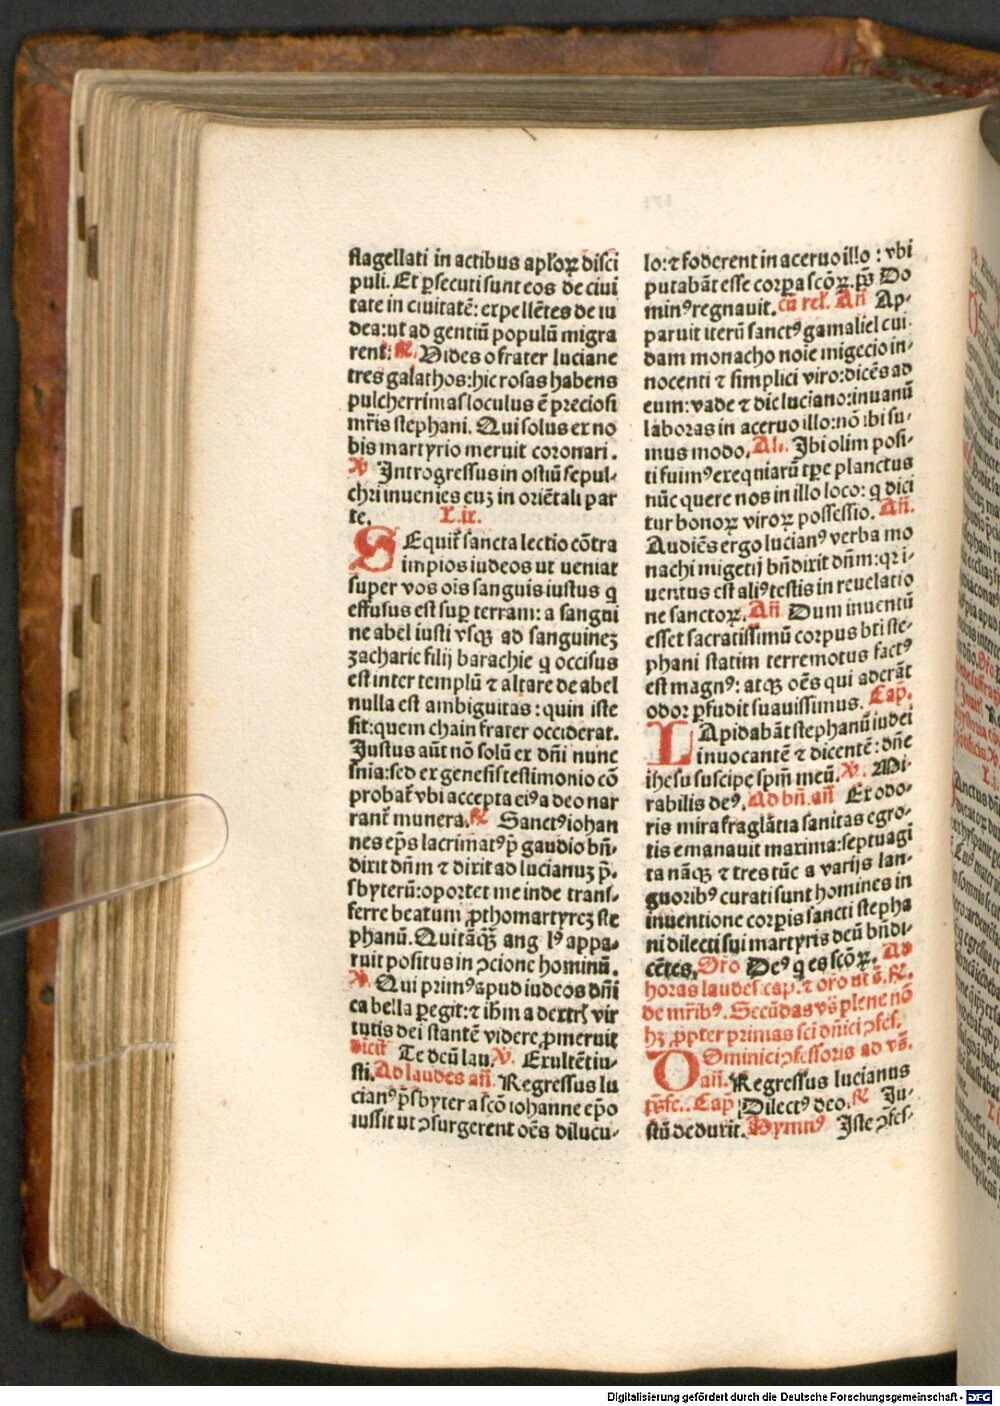 flagellati in actibus aplōꝝ disci
puli. Et ꝑsecuti sunt eos de ciui
tate in ciuitatē: expellētes de iu
dea: ut ad gentiū populū migra
rent. ℟. Uides o frater luciane
tres galathos: hic rosas habens
pulcherrimas loculus ē preciosi
mr̄is stephani. Qui solus ex no
bis martyrio meruit coronari.
℣. Introgressus in ostiū sepul-
chri inuenies euꝫ in oriētali par
te. L.ix.
SEquit̄ sancta lectio cōtra
impios iudeos ut ueniat
super vos ōis sanguis iustus q
effusus est suꝑ terram: a sangui
ne abel iusti vsqꝫ ad sanguineꝫ
zacharie filij barachie q occisus
est inter templū ⁊ altare de abel
nulla est ambiguitas: quin iste
sit: quem chain frater occiderat.
Justus aūt nō solū ex dn̄i nunc
snīa: sed ex genesis testimonio cō
probat̄ vbi accepta eiꝰ a deo nar
rant̄ munera. ℟. Sanctꝰ iohan
nes ep̄s lacrimatꝰ p̄ gaudio bn̄-
dixit dn̄m ⁊ dixit ad lucianuꝫ p̄-
sbyterū: oportet me inde trans-
ferre beatum ꝓthomartyreꝫ ste
phanū. Qui tāqꝫ̄ ang lꝰ appa-
ruit positus in ꝯcione hominū.
℣. Qui primꝰ apud iudeos dn̄i
ca bella ꝑegit: ⁊ ih̄m a dextrꝭ vir
tutis dei stantē videre ꝓmeruit
dicit̄ Te deū lau. ℣. Exultēt iu-
sti. Ad laudes an̄. Regressus lu
cianꝰ p̄sbyter a scō iohanne ep̄o
iussit ut ꝯsurgerent oēs dilucu-
lo: ⁊ foderent in aceruo illo: vbi
putabāt esse corꝑa scōꝝ. p̄s Do
minꝰ regnauit. cū rel. An̄ Ap-
paruit iterū sanctꝰ gamaliel cui-
dam monacho noīe migecio in-
nocenti ⁊ simplici viro: dicēs ad
eum: vade ⁊ dic luciano: in uanū
laboras in aceruo illo: nō ibi su-
mus modo. Al. Ibi olim posi-
ti fuimꝰ exeq niarū tꝑe planctus
nūc quere nos in illo loco: q dici
tur bonoꝝ viroꝝ possessio. An̄.
Audiēs ergo lucianꝰ verba mo
nachi migetij bn̄dixit dn̄m: qꝛ i-
uentus est aliꝰ testis in reuelatio
ne sanctoꝝ. An̄ Dum inuentū
esset sacratissimū corpus bt̄i ste-
phani statim terremotus factꝰ
est magnꝰ: atqꝫ oēs qui aderāt
odor ꝑfudit suauissimus. Cap.
LApidabāt stephanū iudei
inuocantē ⁊ dicentē: dn̄e
ihesu suscipe sp̄m meū. ℣. Mi-
rabilis deꝰ. Ad bn̄. an̄ Ex odo-
ris mira fraglātia sanitas egro-
tis emanauit maxima: septuagi
ta nāqꝫ ⁊ tres tūc a varijs lan-
guoribꝰ curati sunt homines in
inuentione corꝑis sancti stepha
ni dilecti sui martyris deū bn̄di-
cētes. Or̄o Deꝰ q es scōꝝ. Ad
horas laudes. cap. ⁊ or̄o ut s̄. ℟.
de mr̄ibꝰ. Secūdas vs̄ plene nō
hꝫ ꝓpter primas sci dn̄ici ꝯfes.
DOminici ꝯfessoris ad vs̄.
an̄. Regressus lucianus
p̄s fe.. Cap̄ Dilectꝰ deo. ℟ Ju-
stū deduxit. Hymnꝰ Iste ꝯfes-
Digitalisierung gefördert durch die Deutsche Forschungsgemeinschaft - DFG